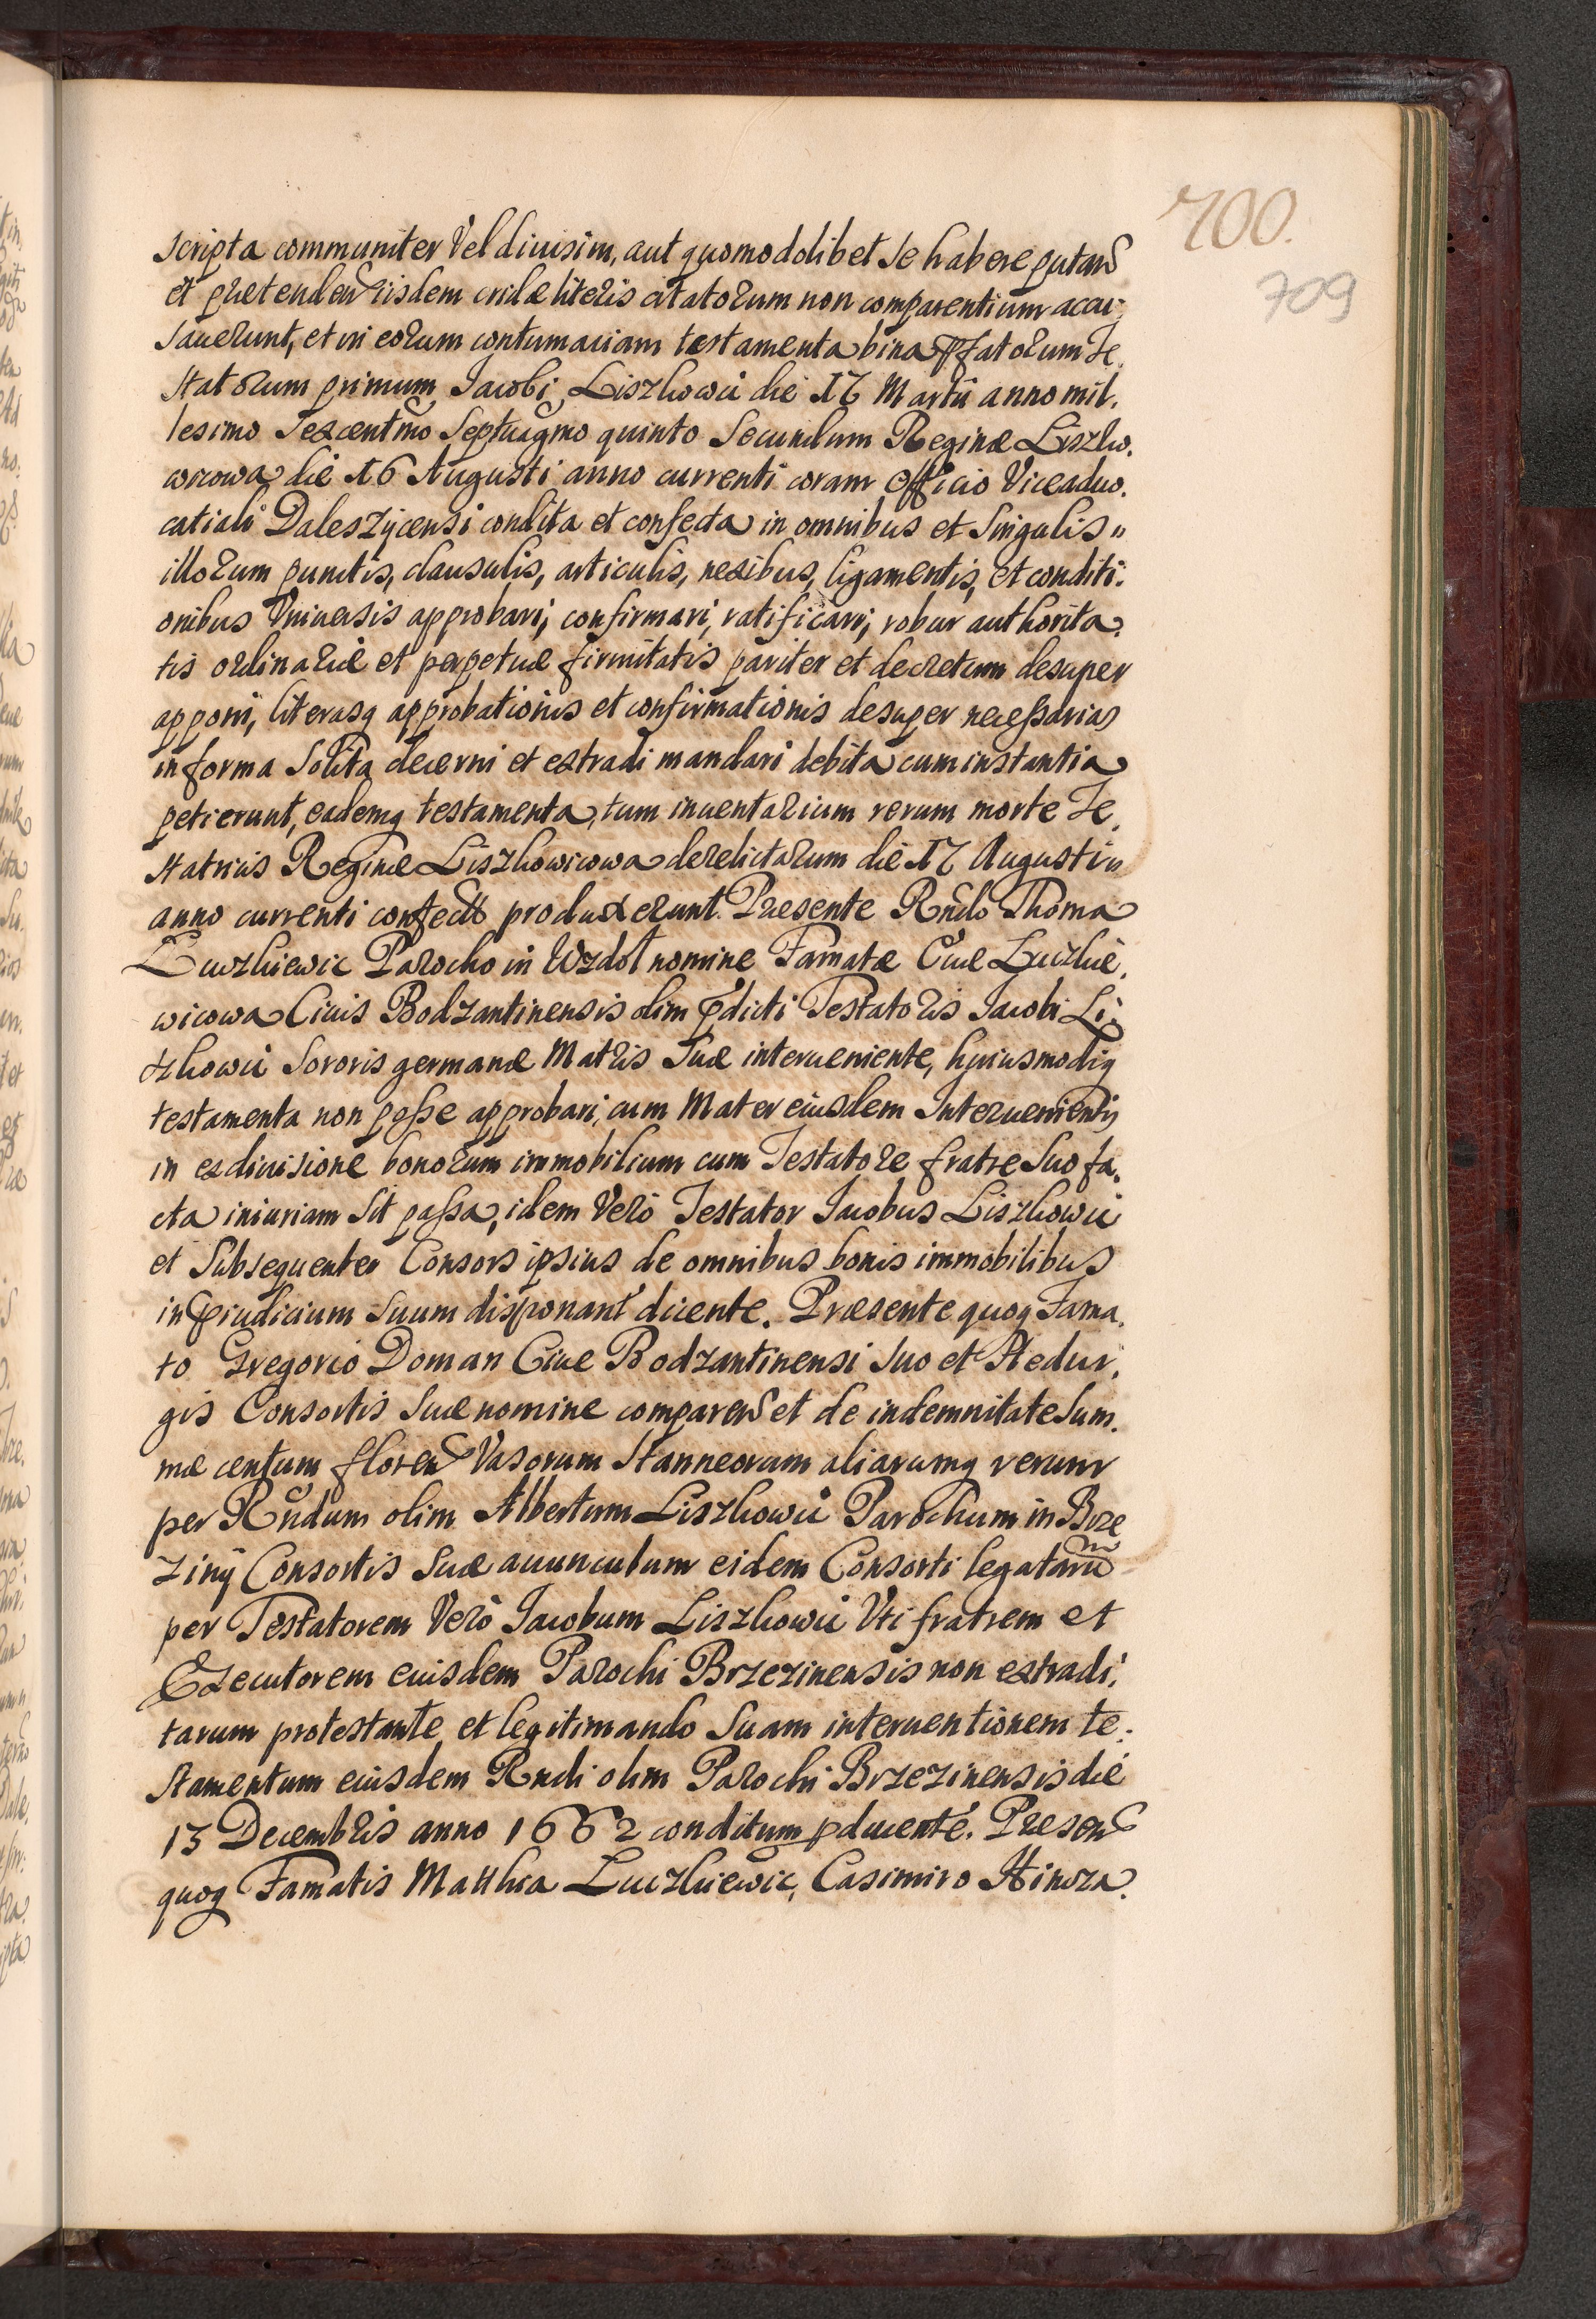 700.
709
scripta communiter Vel diuisim, aut quomodolibet se habere putan̄
et pretenden̄ eisdem cridæ literis citatorum non comparentium accu:
sauerunt, et in eorum contumaciam testamenta bina p̄fatorum Te.
statorum primum Jacobi Liszkowic die 17 Martii anno mil.
lesimo Sexcent̄mo Septuag̃mo quinto Secundum Reginæ Liszko.
wicowa die 16 Augusti anno currenti coram Officio Viceaduo.
catiali Daleszÿcensi condita et confecta in omnibus et Singulis "
illorum punctis, clausulis, articulis, nexibus, ligamentis, et conditi:
onibus Vniuersis approbari, confirmari, ratificari, robur authorita.
tis ordinariæ et perpetuæ firmitatis pariter et decretum desuper
apponi, literasq approbationis et confirmationis desuper necessarias
in forma Solita decerni et extradi mandari debita cum instantia
petierunt, eademq testamenta, tum inuentarium rerum morte Te.
statricis Reginæ Liszkowicowa derelictarum die 17 Augusti "
anno currenti confect̄ produxerunt. Presente Rn̄do Thoma
Luczkiewic Parocho in Wzdoł nomine Famatæ Euæ Luczkie.
wicowa Ciuis Bodzantinensis olim p̄dicti Testatoris Jacobi Li:
szkowic Sororis germanæ Matris Suæ interueniente, huiusmodiq
testamenta non posse approbari, cum Mater eiusdem Interuenientis
in exdiuisione bonorum immobilium cum Testatore fratre Suo fa.
cta iniuriam Sit passa, idem Vero Testator Jacobus Liszkowic
et Subsequenter Consors ipsius de omnibus bonis immobilibus
in p̄iudicium Suum disponant dicente. Præsente quoq Fama.
to Gregorio Doman Ciue Bodzantinensi Suo et Hedui.
gis Consortis Suæ nomine comparen̄ et de indemnitate Sum.
mæ centum floren̄ Vasorum Stanneorum aliarumq rerum
per Rn̄dum olim Albertum Liszkowic Parochum in Brze
zinÿ Consortis Suæ auunculum eidem Consorti legatarū
per Testatorem Vero Jacobum Liszkowic Vti fratrem et
Executorem eiusdem Parochi Brzezinensis non extradi:
tarum protestante et legitimando Suam interuentionem te.
stamentum eiusdem Rndi olim Parochi Brzezinensis die
13 Decembris anno 1662 conditum p̱ducente. Presen̄
quoq Famatis Matthia Luczkiewic, Casimiro